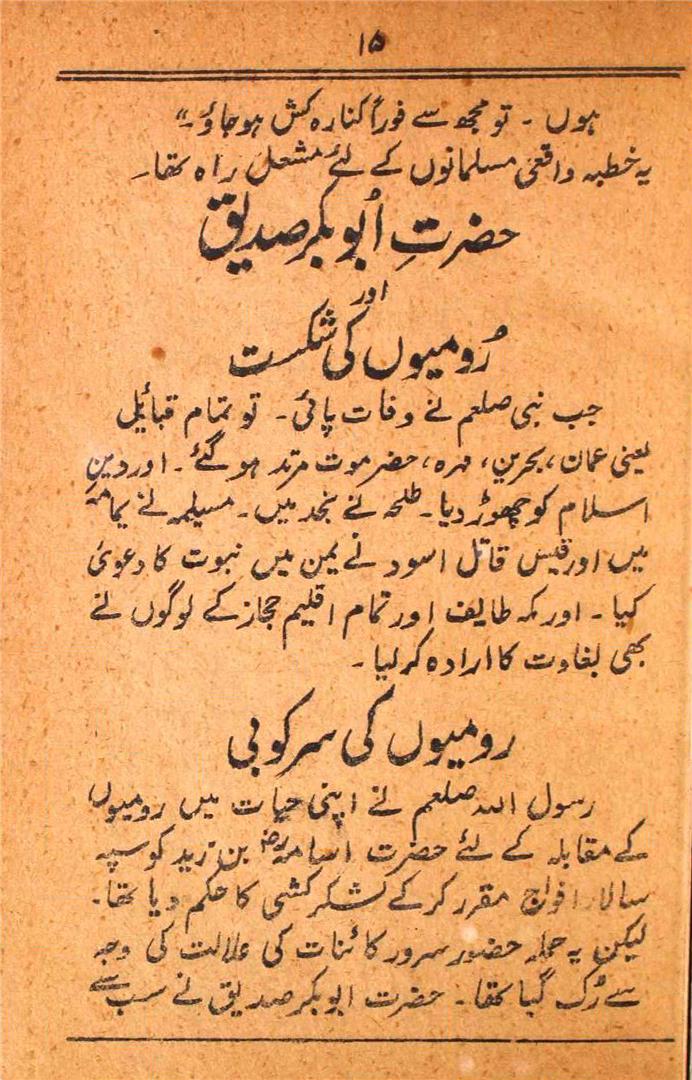 ۱۵
ہوں ۔ تو مجھ سے فوراً کنارہ کش ہو جاؤ۔"
یہ خطبہ واقعی مسلمانوں کے لئے مشعل راہ تھا۔
حضرتِ اُبوبکر صدیق
اور
رُومیوں کی شکست
جب نبی صلعم نے وفات پائی۔ تو تمام قبائیل
یعنی عمان، بحرین، مہرہ، حضرموت مرتد ہو گئے۔ اور دینِ
اسلام کو چھوڑ دیا۔ طلحہ نے نجد میں۔ مسیلمہ نے یمامہ
میں اور قیس قاتل اسود نے یمن میں نبوت کا دعویٰ
کیا۔ اور مکہ طایف اور تمام اقلیم حجاز کے لوگوں نے
بھی بغاوت کا ارادہ کر لیا۔
رومیوں کی سرکوبی
رسول اللہ صلعم نے اپنی حیات میں رومیوں
کے مقابلہ کے لئے حضرت اسامہؓ بن زید کو سپہ
سالار افواج مقرر کر کے لشکر کشی کا حکم دیا تھا۔
لیکن یہ حملہ حضور سرور کائنات کی علالت کی وجہ
سے رُک گیا تھا۔ حضرت ابوبکر صدیق نے سب سے